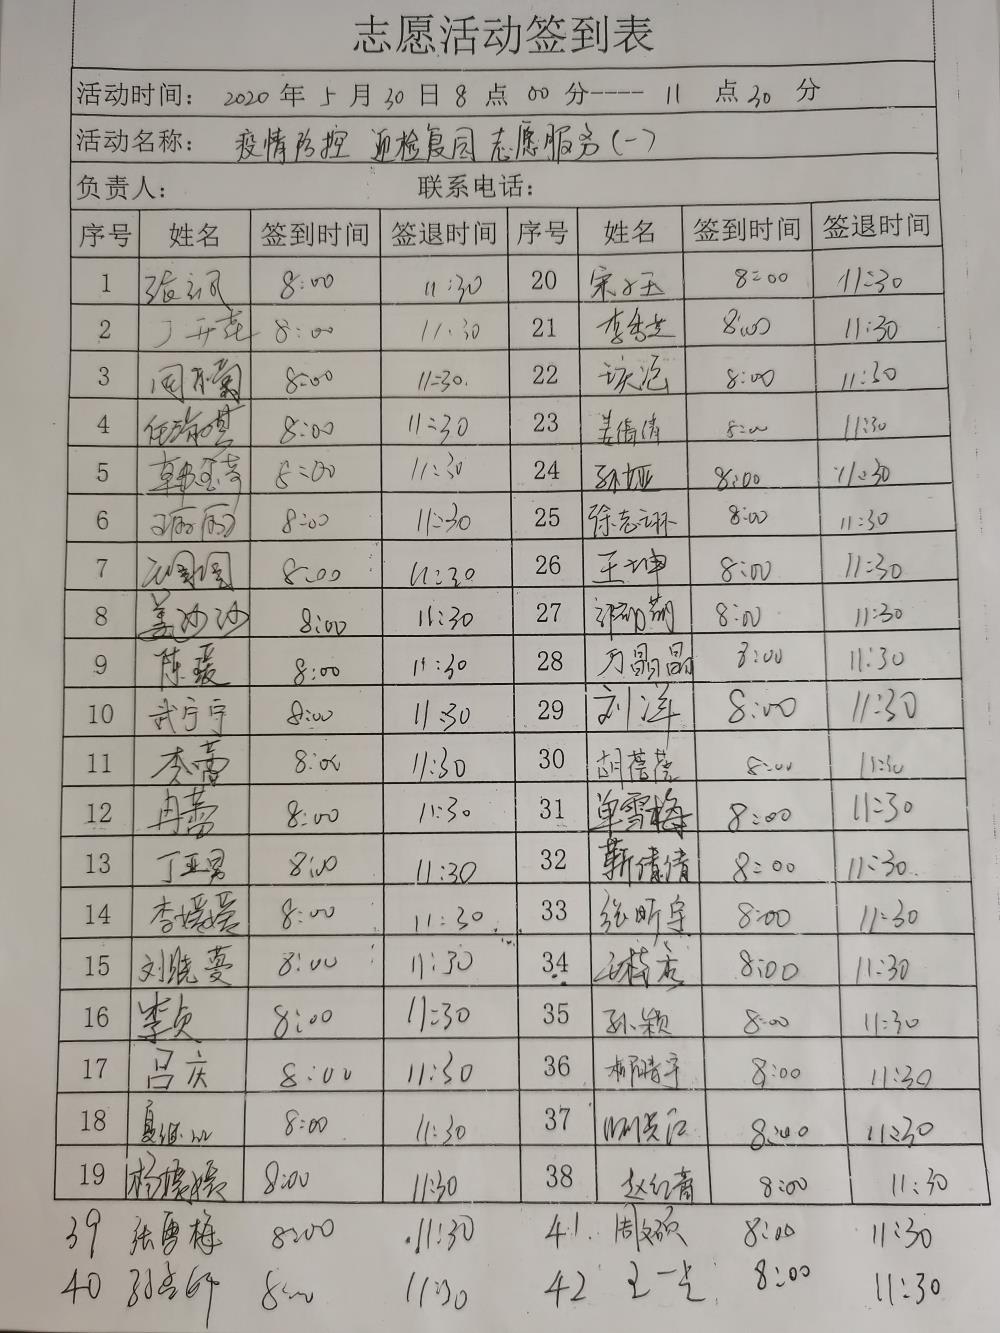 志愿活动签到表
活动时间： 2020 年 5 月 30 日 8 点 00 分---- 11 点 30 分
活动名称： 疫情防控 迎检复园 志愿服务(一)
负责人： 联系电话：
序号 姓名 签到时间 签退时间 序号 姓名 签到时间 签退时间
1 8:00 11:30 20 宋子玉 8:00 11:30
2 8:00 11:30 21 8:00 11:30
3 8:00 11:30 22 8:00 11:30
4 8:00 11:30 23 姜倩倩 8:00 11:30
5 8:00 11:30 24 孙娅 8:00 11:30
6 王丽丽 8:00 11:30 25 8:00 11:30
7 8:00 11:30 26 王坤 8:00 11:30
8 姜沙沙 8:00 11:30 27 8:00 11:30
9 陈瑗 8:00 11:30 28 万晶晶 8:00 11:30
10 武宁宁 8:00 11:30 29 刘洋 8:00 11:30
11 李蕾 8:00 11:30 30 胡蓓蓓 8:00 11:30
12 冉蕾 8:00 11:30 31 单雪梅 8:00 11:30
13 丁亚男 8:00 11:30 32 靳倩倩 8:00 11:30
14 李媛媛 8:00 11:30 33 张昕宇 8:00 11:30
15 刘晓蔓 8:00 11:30 34 8:00 11:30
16 李贞 8:00 11:30 35 孙颖 8:00 11:30
17 吕庆 8:00 11:30 36 8:00 11:30
18 8:00 11:30 37 8:00 11:30
19 杨媛媛 8:00 11:30 38 赵红蕾 8:00 11:30
39 张雪梅 8:00 11:30 41. 周文硕 8:00 11:30
40 8:00 11:30 42 8:00 11:30